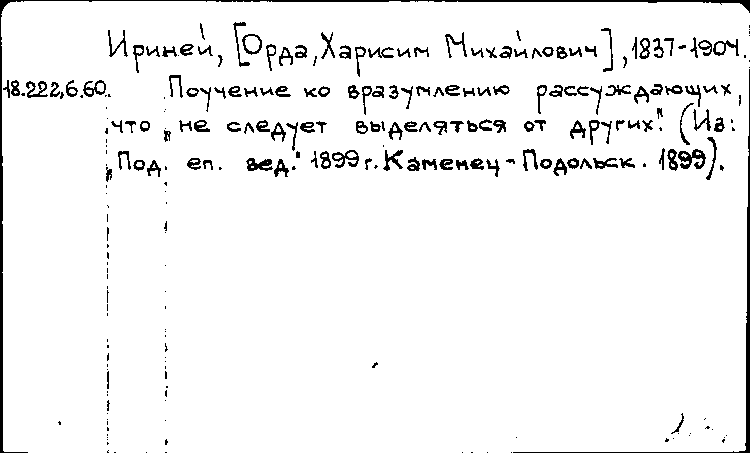 Ириней, [Орда, Харисим Михайлович], 1837-1904.
18.222,6.60. Поучение ко вразумлению рассуждающих,
что „не следует выделяться от других." (Из:
„Под. еп. вед." 1899 г. Каменец-Подольск. 1899).